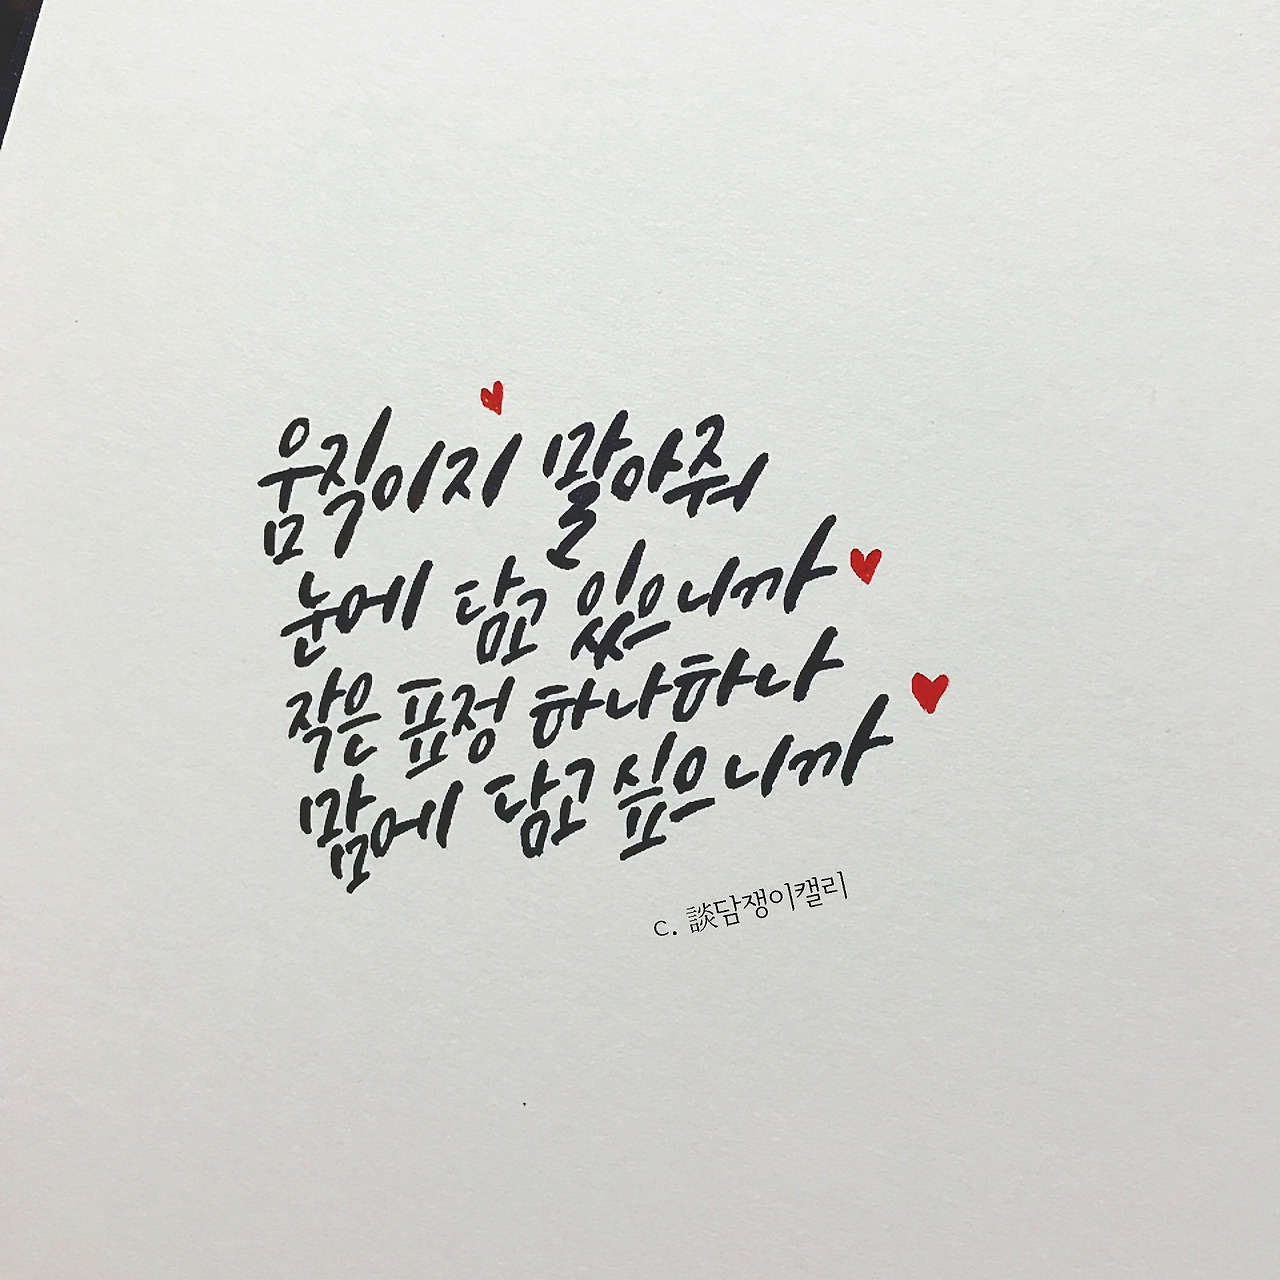 움직이지 말아줘
눈에 담고 있으니까
작은 표정 하나하나
맘에 담고 싶으니까
c. 談담쟁이캘리